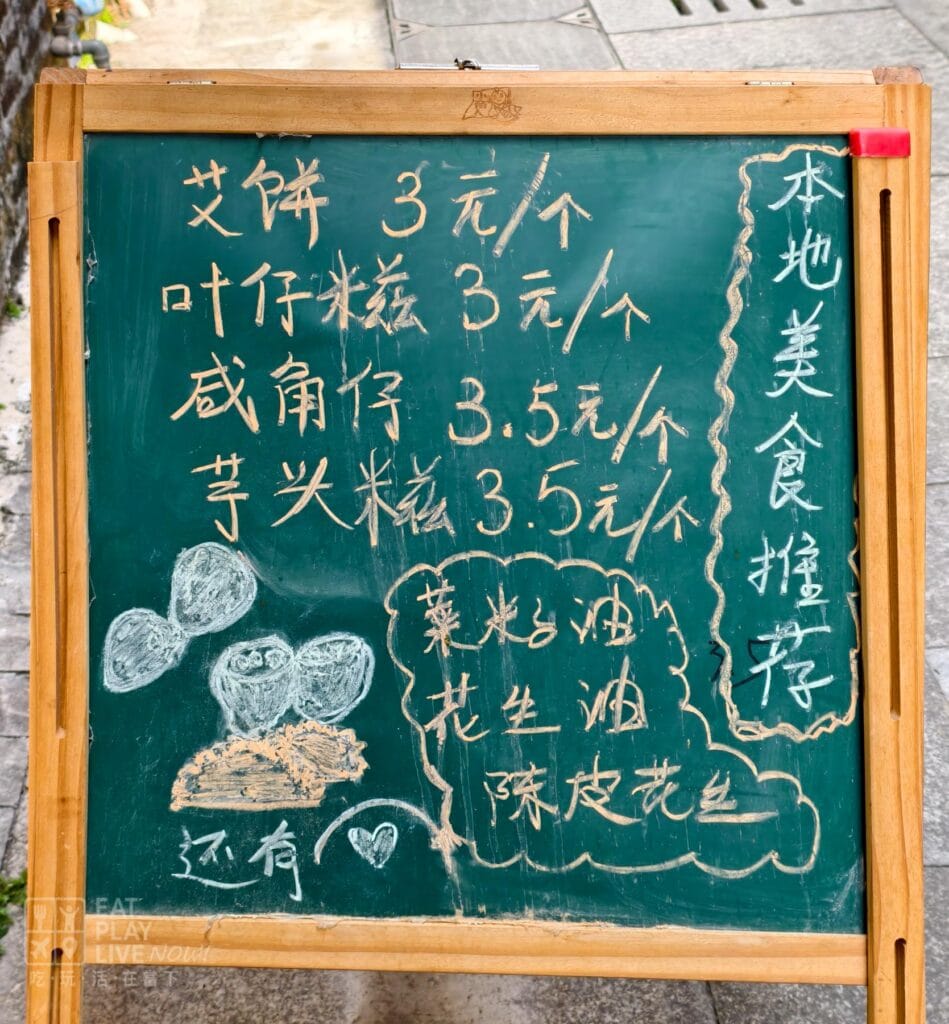 本地美食推荐
艾饼 3元/个
叶仔糍 3元/个
咸角仔 3.5元/个
芋头糍 3.5元/个
菜籽油
花生油
陈皮花丝
还有
EAT
PLAY
LIVE NOW!
吃·玩·活·在當下